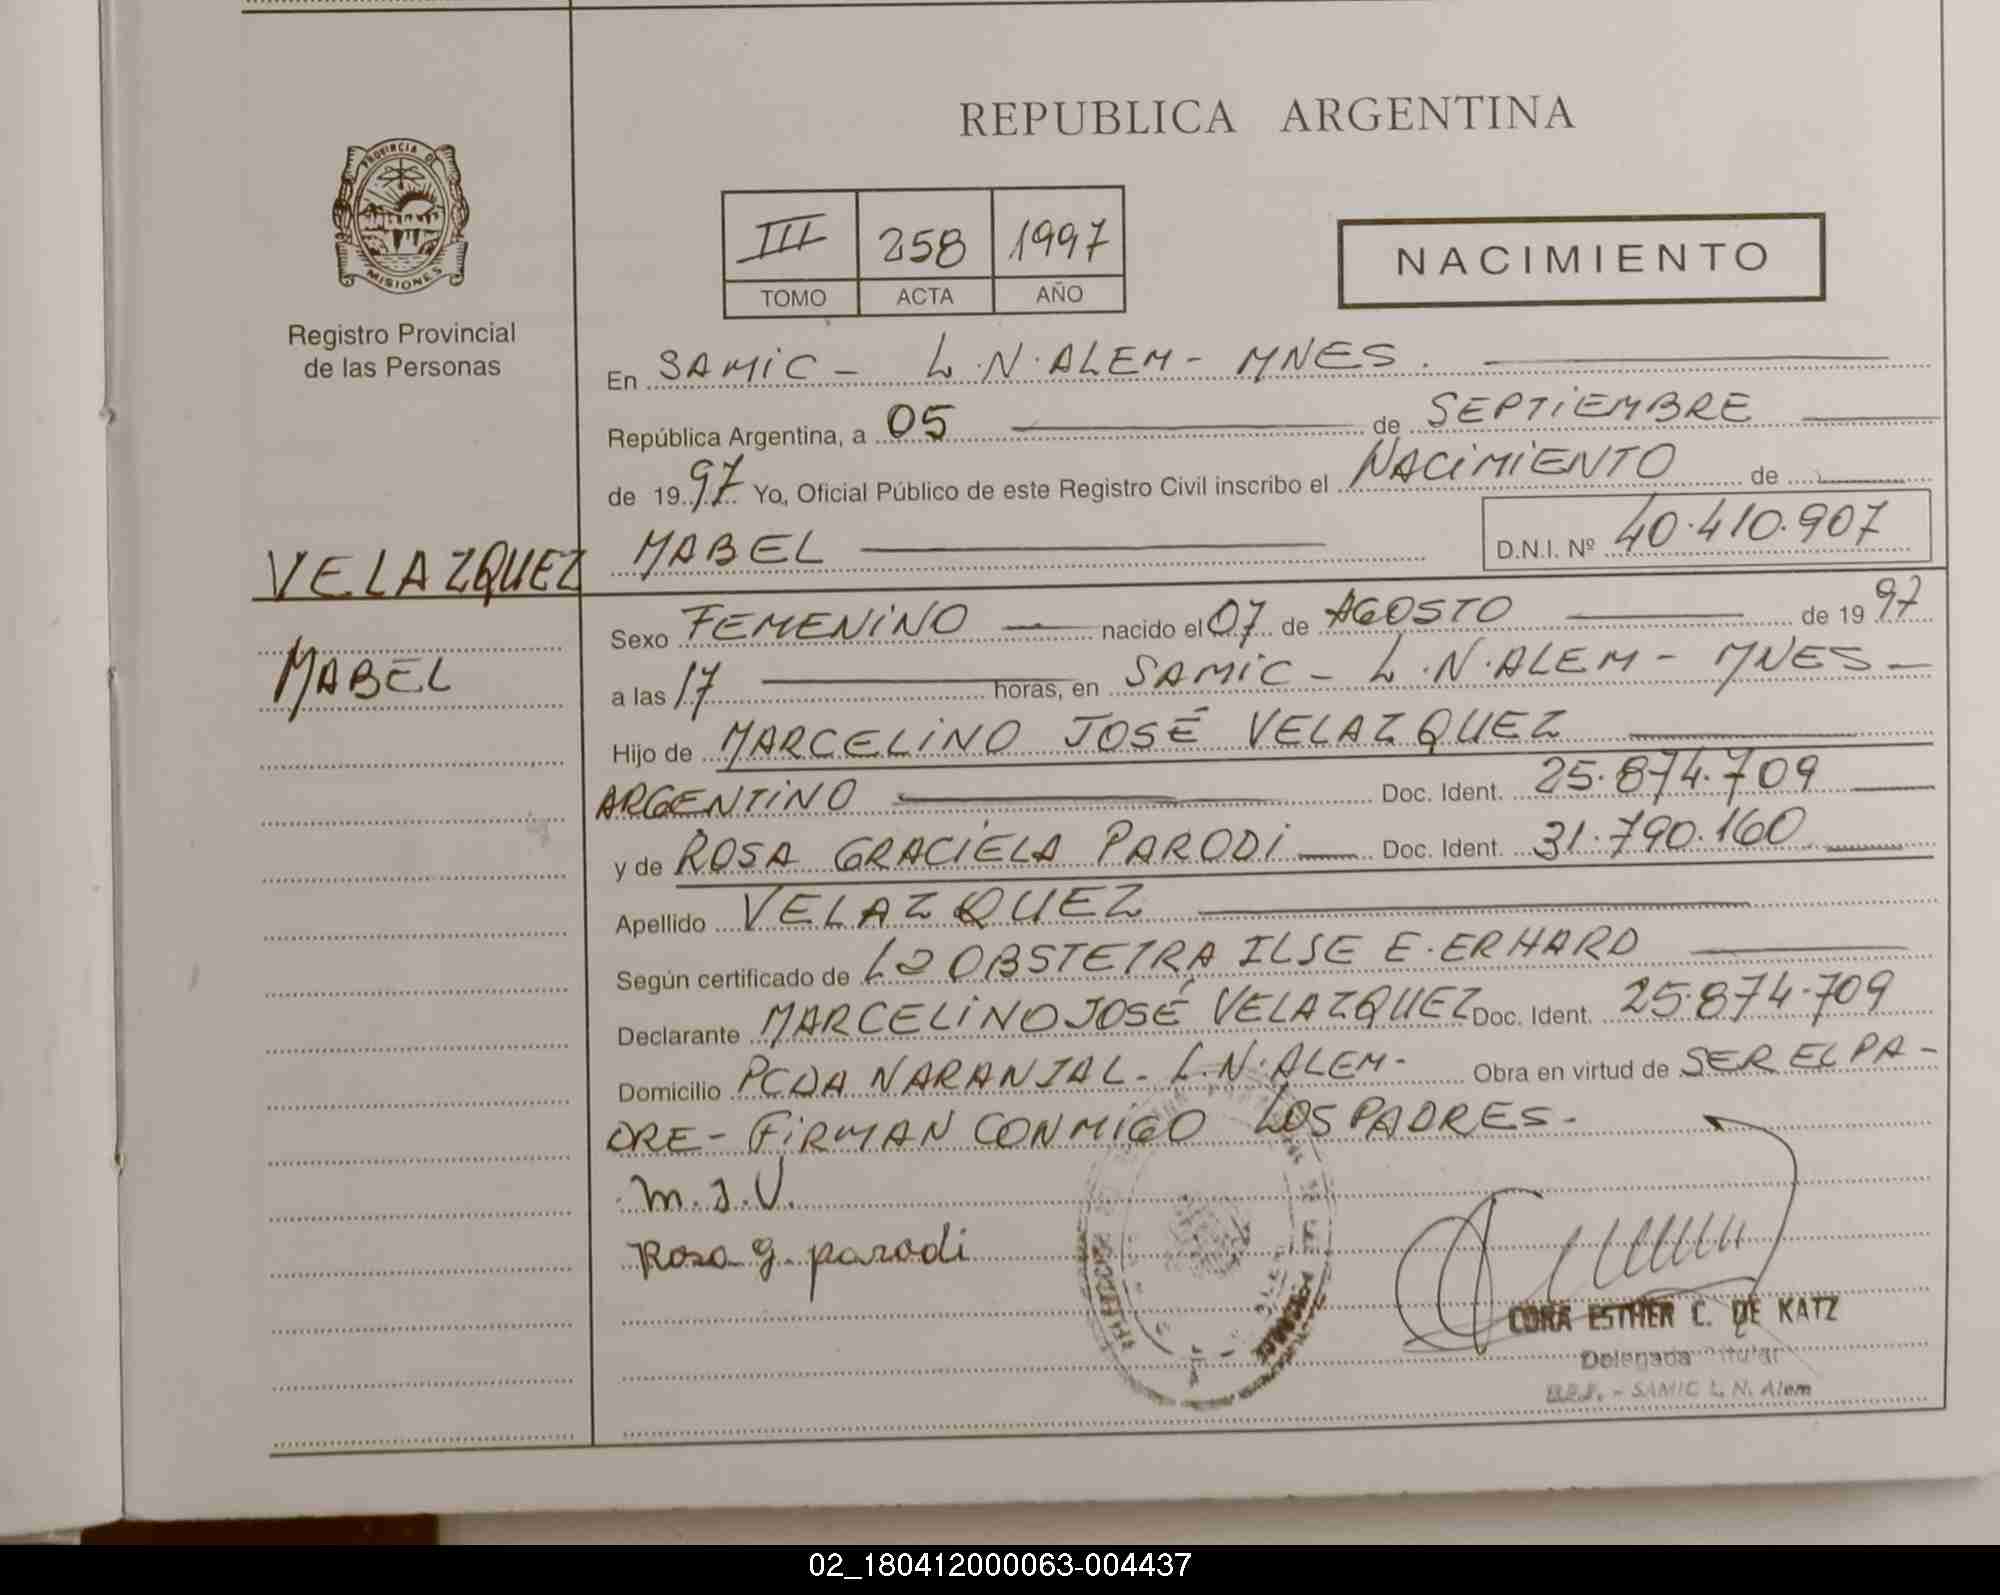 REPUBLICA ARGENTINA
PROVINCIA DE
MISIONES
Registro Provincial
de las Personas
III 258 1997
TOMO ACTA AÑO
NACIMIENTO
En SAMIC - L.N.ALEM - MNES.
República Argentina, a 05 de SEPTIEMBRE
de 1997 Yo, Oficial Público de este Registro Civil inscribo el NACIMIENTO de
VELAZQUEZ
MABEL
MABEL D.N.I. Nº 40.410.907
Sexo FEMENINO nacido el 07 de AGOSTO de 1997
a las 17 horas, en SAMIC - L.N.ALEM - MNES -
Hijo de MARCELINO JOSÉ VELAZQUEZ
ARGENTINO Doc. Ident. 25.874.709
y de ROSA GRACIELA PARODI Doc. Ident. 31.790.160
Apellido VELAZQUEZ
Según certificado de La OBSTETRA ILSE E. ERHARD
Declarante MARCELINO JOSÉ VELAZQUEZ Doc. Ident. 25.874.709
Domicilio PCDA NARANJAL - L.N.ALEM - Obra en virtud de SER EL PA-
DRE - FIRMAN CONMIGO LOS PADRES -
M.J.V.
Rosa g. parodi
CORA ESTHER C. DE KATZ
Delegada Titular
SAMIC L. N. Alem
02_180412000063-004437